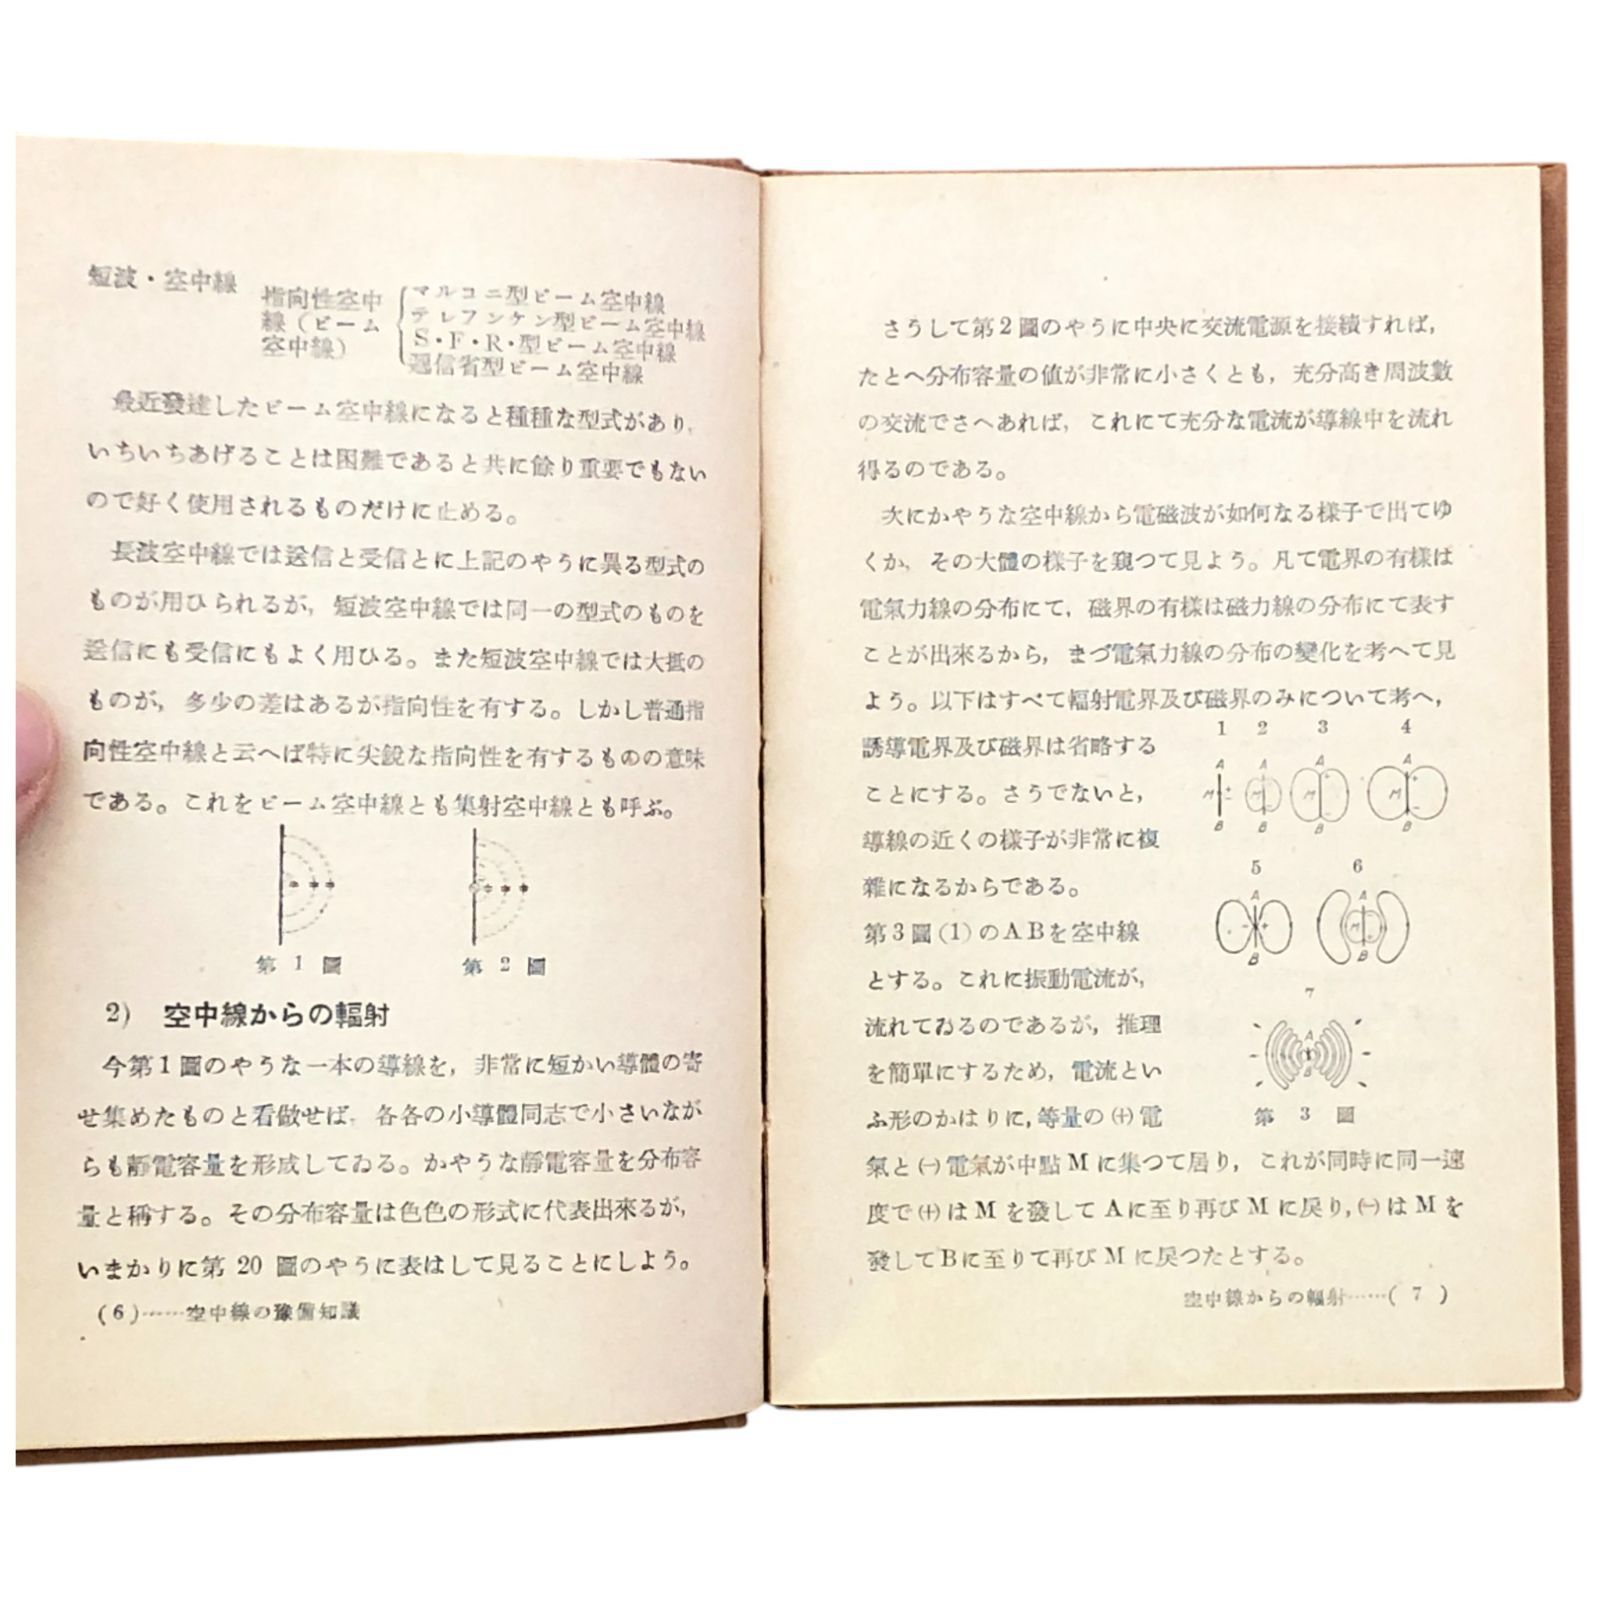 短波・空中線
指向性空中
線（ビーム
空中線）
マルコニ型ビーム空中線
テレフンケン型ビーム空中線
S・F・R・型ビーム空中線
遞信省型ビーム空中線
最近發達したビーム空中線になると種種な型式があり，
いちいちあげることは困難であると共に餘り重要でもない
ので好く使用されるものだけに止める。
長波空中線では送信と受信とに上記のやうに異る型式の
ものが用ひられるが，短波空中線では同一の型式のものを
送信にも受信にもよく用ひる。また短波空中線では大抵の
ものが，多少の差はあるが指向性を有する。しかし普通指
向性空中線と云へば特に尖鋭な指向性を有するものの意味
である。これをビーム空中線とも集射空中線とも呼ぶ。
第 1 圖
第 2 圖
2) 空中線からの輻射
今第1圖のやうな一本の導線を，非常に短かい導體の寄
せ集めたものと看做せば，各各の小導體同志で小さいなが
らも靜電容量を形成してゐる。かやうな靜電容量を分布容
量と稱する。その分布容量は色色の形式に代表出來るが，
いまかりに第 20 圖のやうに表はして見ることにしよう。
(6)……空中線の豫備知識
さうして第2圖のやうに中央に交流電源を接續すれば，
たとへ分布容量の値が非常に小さくとも，充分高き周波數
の交流でさへあれば，これにて充分な電流が導線中を流れ
得るのである。
次にかやうな空中線から電磁波が如何なる樣子で出てゆ
くか，その大體の樣子を窺つて見よう。凡て電界の有樣は
電氣力線の分布にて，磁界の有樣は磁力線の分布にて表す
ことが出來るから，まづ電氣力線の分布の變化を考へて見
よう。以下はすべて輻射電界及び磁界のみについて考へ，
誘導電界及び磁界は省略する
ことにする。さうでないと，
導線の近くの樣子が非常に複
雜になるからである。
第3圖(1)のABを空中線
とする。これに振動電流が，
流れてゐるのであるが，推理
を簡單にするため，電流とい
ふ形のかはりに，等量の(+)電
1 2 3 4
A A A A
M M M
B B B B
5 6
A A
M
B B
7
A
B
第 3 圖
氣と(−)電氣が中點Mに集つて居り，これが同時に同一速
度で(+)はMを發してAに至り再びMに戻り，(−)はMを
發してBに至りて再びMに戻つたとする。
空中線からの輻射……( 7 )